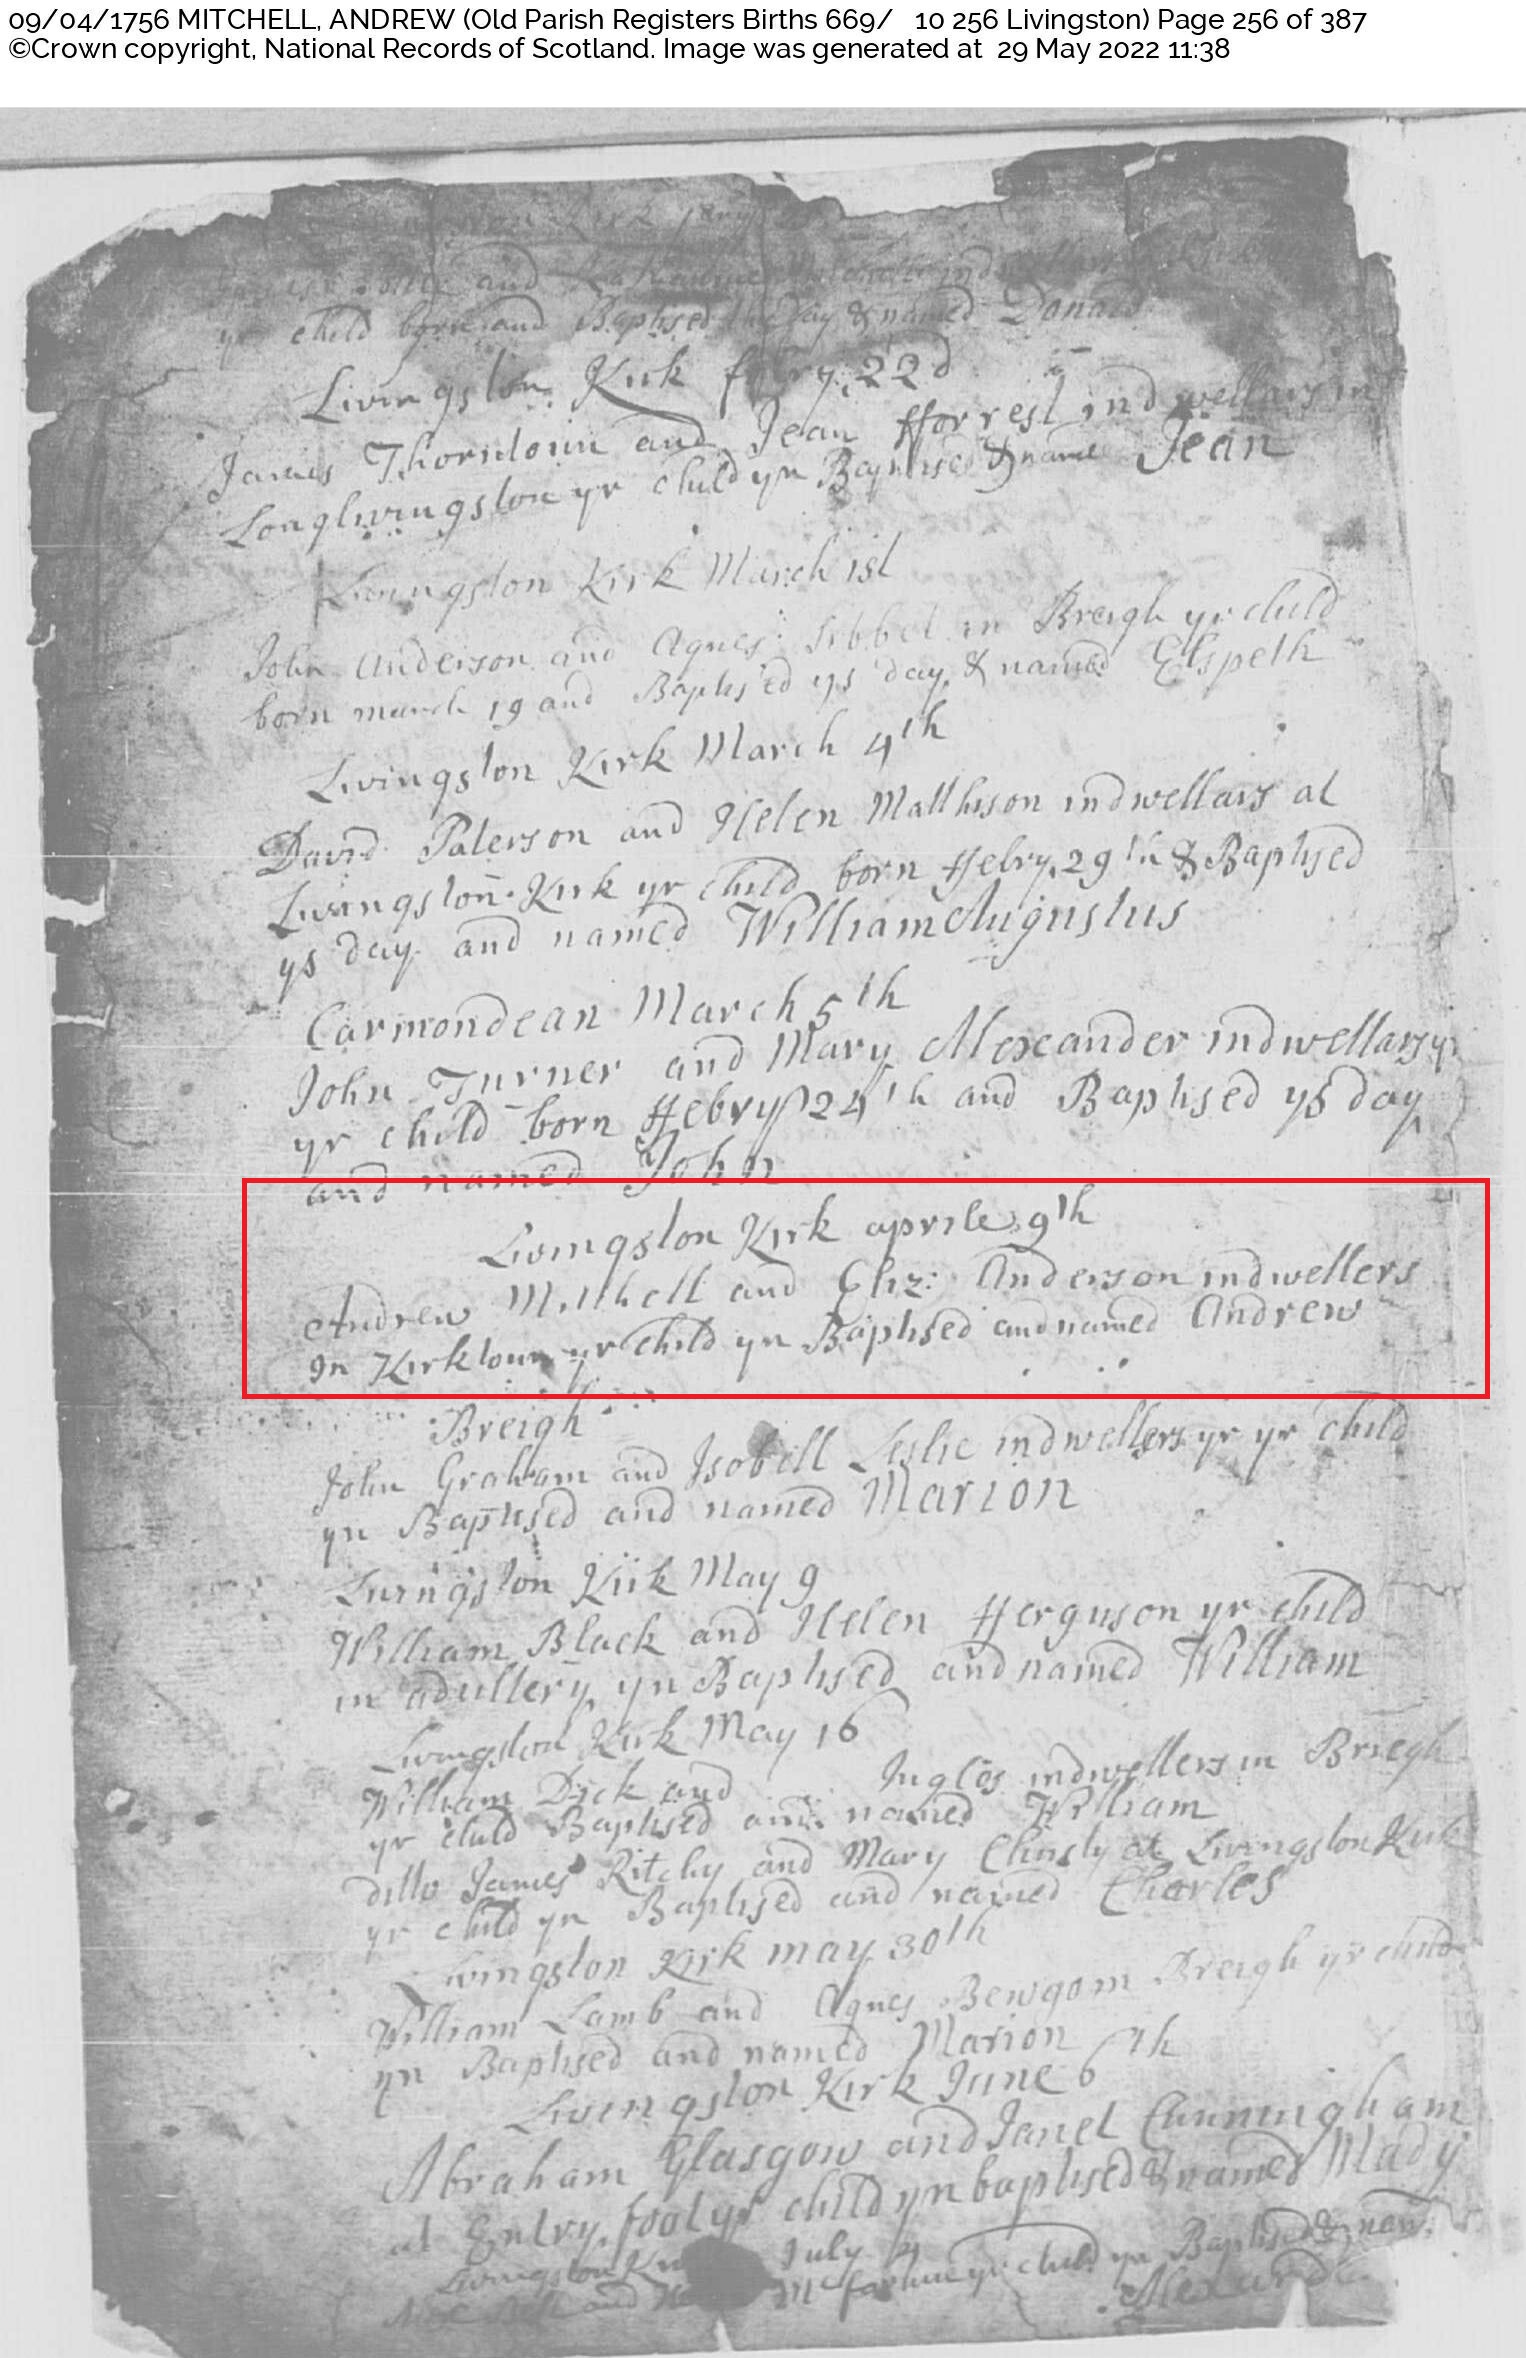 09/04/1756 MITCHELL, ANDREW (Old Parish Registers Births 669/ 10 256 Livingston) Page 256 of 387
©Crown copyright, National Records of Scotland. Image was generated at 29 May 2022 11:38
Kirk
and
yr child born and Baptised the day & named Donald
Livingston Kirk febry 22d
James Thorntoun and Jean fforrest indwellars in
Longlivingston yr child yn Baptised & name Jean
Livingston Kirk March 1st
John Anderson and Agnes in Breigh yr child
born march 19 and Baptis'ed ys day & named Elspeth
Livingston Kirk March 4th
David Paterson and Helen Matthison indwellars at
Livingston Kirk yr child born ffebry 29th & Baptised
ys day and named William Augustus
Carmondean March 5th
John Turner and Mary Alexeander indwellars yr
yr child born ffebry 24th and Baptised ys day
and named John
Livingston Kirk aprile 9th
Andrew Mitthell and Eliz: Anderson indwellers
In Kirktoun yr child yn Baptised and named Andrew
Breigh
John Graham and Isobell Leslie indwellers yr yr child
yn Baptised and named Marion
Livingston Kirk May 9
William Black and Helen fferguson yr child
in adultery yn Baptised and named William
Livingston Kirk May 16
William Dick and Inglos indwellers in Briegh
yr child Baptised and named William
ditto James Ritchy and Mary at Livingston Kirk
yr child yn Baptised and named Charles
Livingston Kirk may 30th
William Lamb and Agnes Breigh yr child
yn Baptised and named Marion
Livingston Kirk June 6th
Abraham Glasgow and Janet Cunningham
at Entry foot yr child yn baptised & named Mady
Livingston July 4
and yr child yn Baptised & nam
Alexand